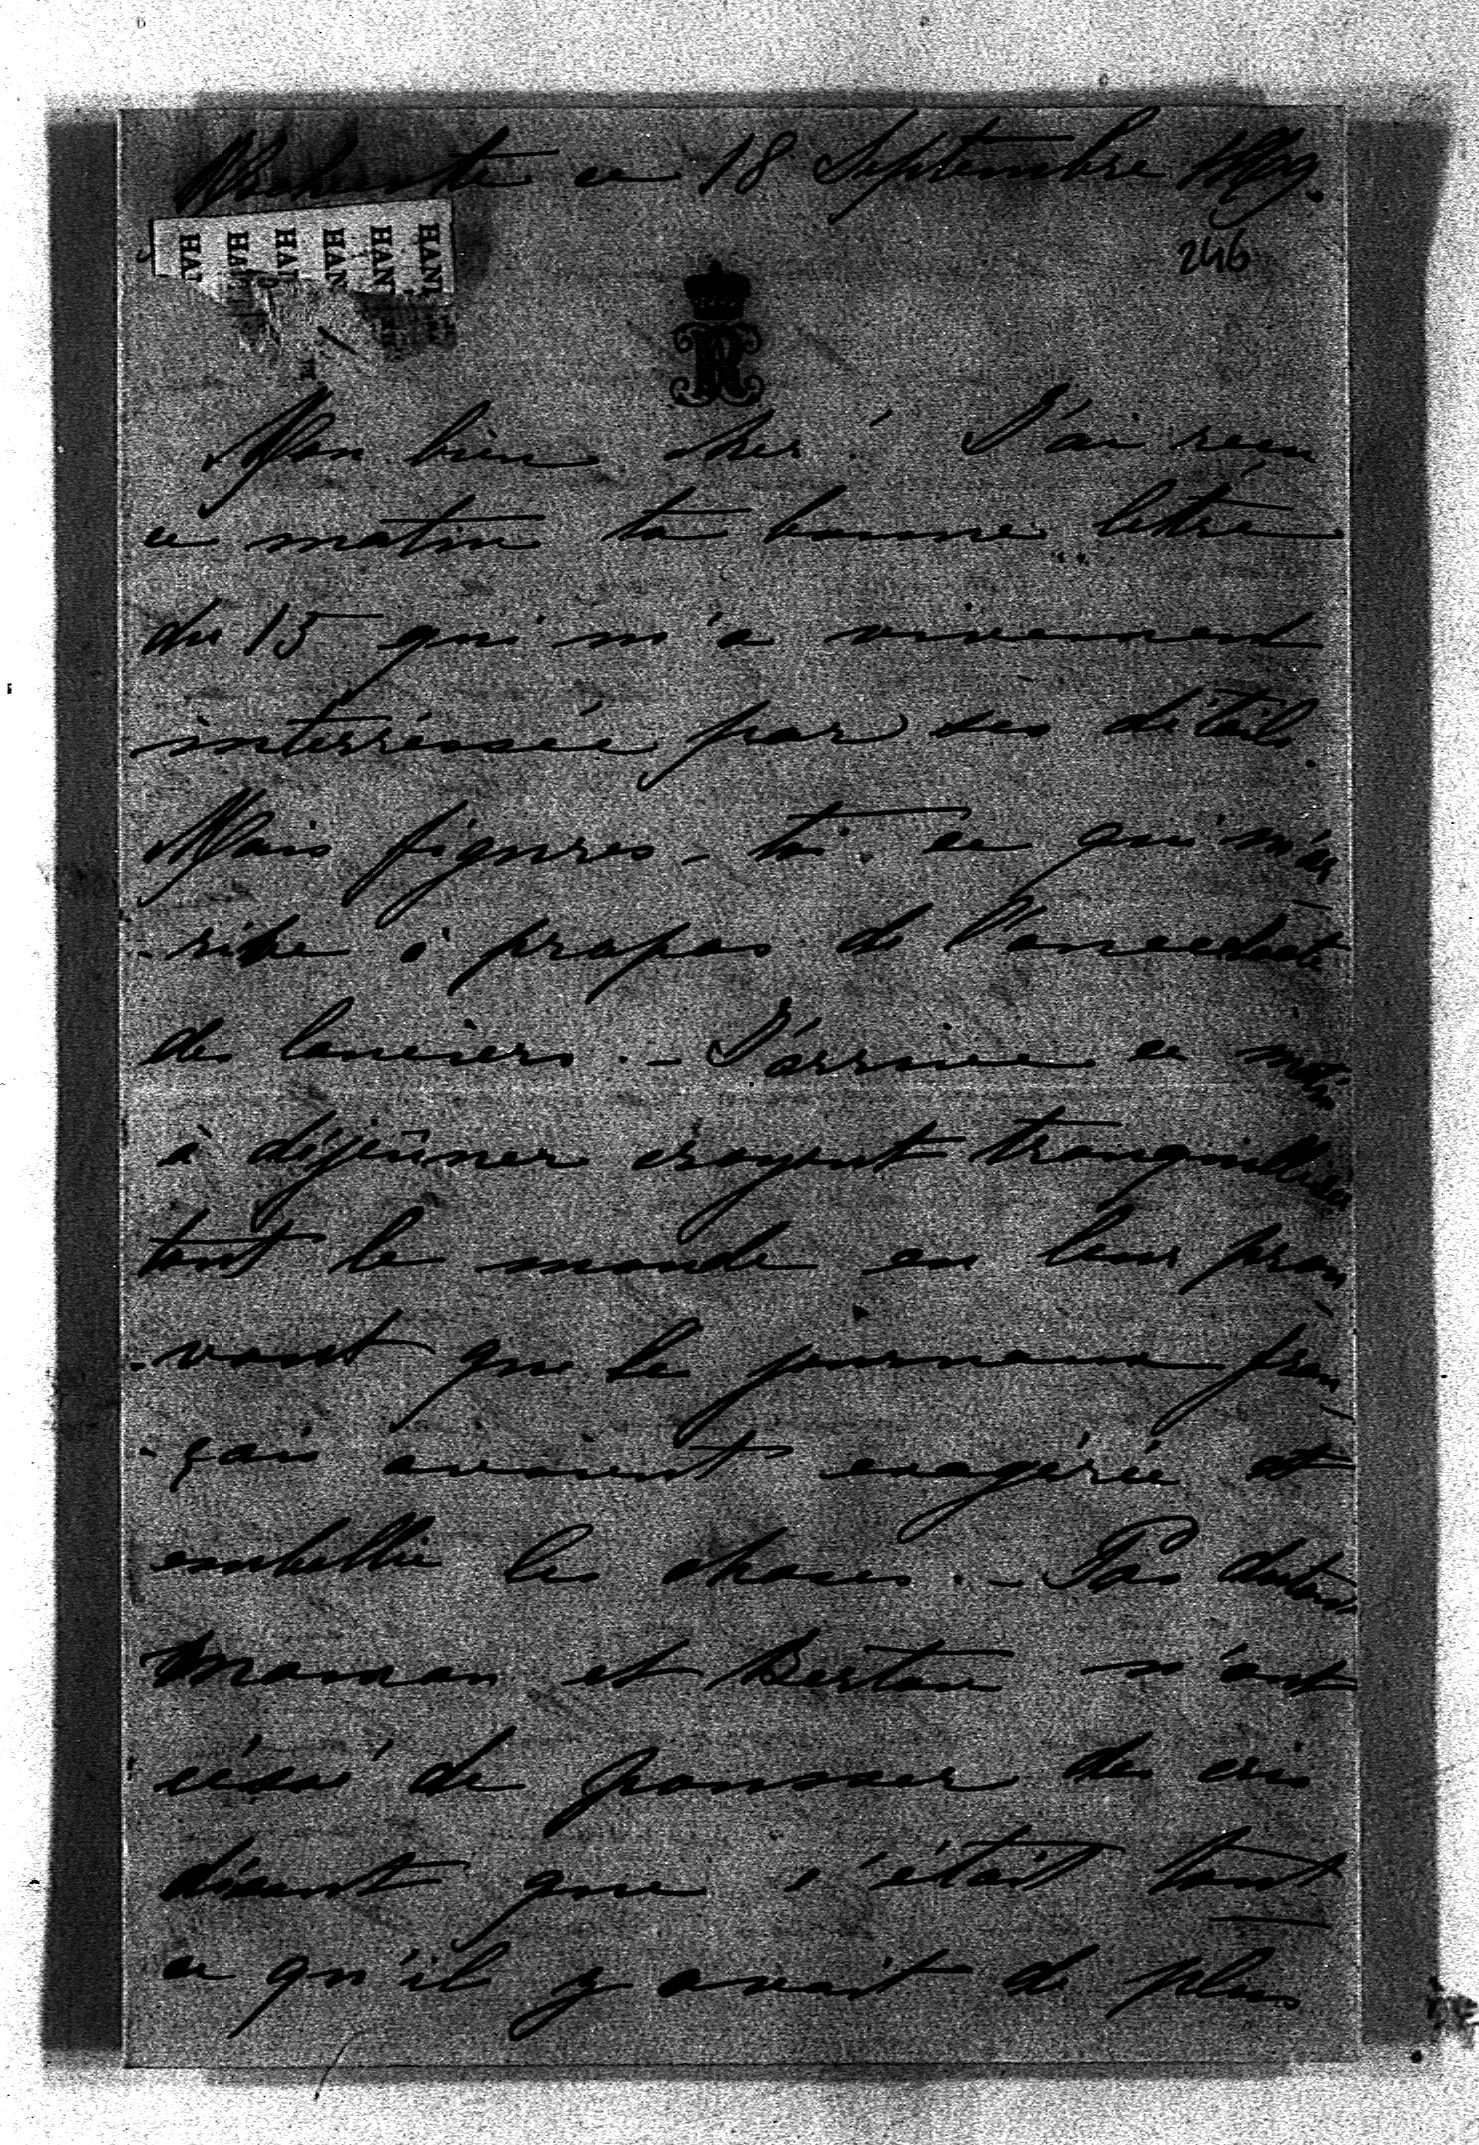 ce 18 Septembre
HAN HAN HAN HAN HAN HAN
246
Mon bien cher! J'ai reçu
ce matin ta bonne lettre
du 15 qui m'a vivement
interréssée par ses détails.
Mais figures-toi ce qui m'ar
-rive à propos de l'anecdote
des lanciers. – J'arrive ce matin
à déjeûner croyant tranquilliser
tout le monde en leur prou
-vant que les journaux fran
-çais avaient exagérée et
embellie les choses. – Pas du tout
Maman et n'ont
céssé de pousser des cris
disant que c'était tout
ce qu'il y avait de plus